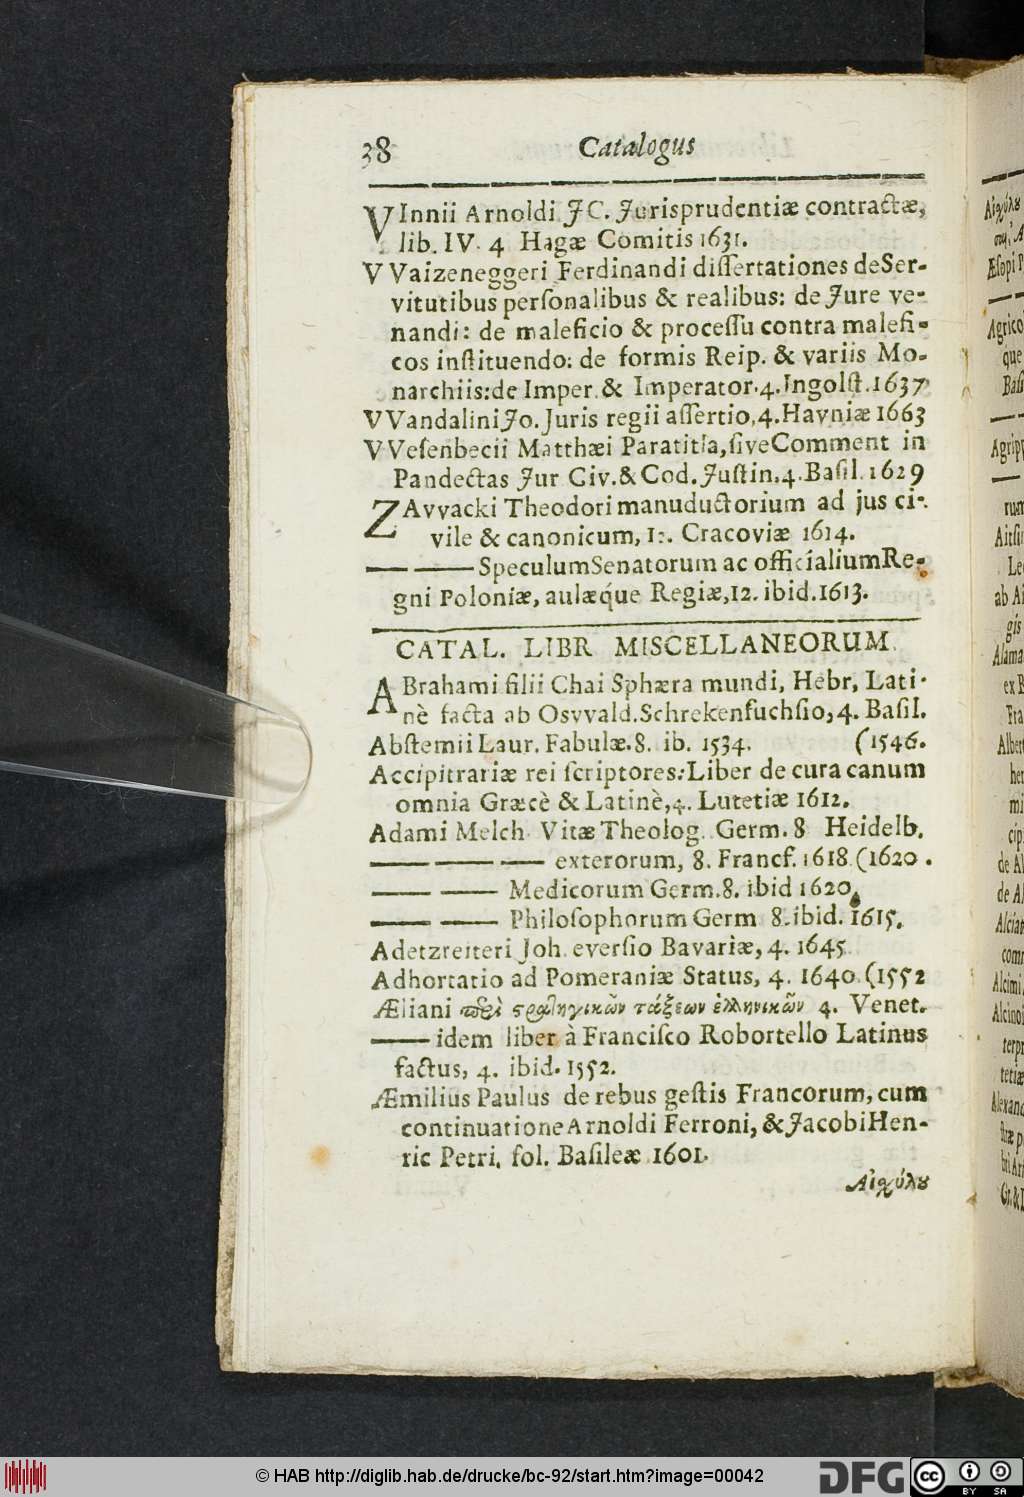 38 Catalogus
VInnii Arnoldi JC. Jurisprudentiæ contractæ,
lib. IV. 4 Hagæ Comitis 1631.
VVaizeneggeri Ferdinandi dissertationes deSer-
vitutibus personalibus & realibus: de Jure ve-
nandi: de maleficio & processu contra malefi-
cos instituendo: de formis Reip. & variis Mo-
narchiis: de Imper. & Imperator. 4. Ingolst. 1637
VVandalini Jo. Juris regii assertio, 4. Havniæ 1663
VVesenbecii Matthæi Paratitla, sive Comment in
Pandectas Jur Civ. & Cod. Justin. 4. Basil. 1629
ZAvvacki Theodori manuductorium ad jus ci-
vile & canonicum, 12. Cracoviæ 1614.
— — Speculum Senatorum ac officialium Re-
gni Poloniæ, aulæque Regiæ, 12. ibid. 1613.
CATAL. LIBR MISCELLANEORUM.
ABrahami filii Chai Sphæra mundi, Hebr, Lati-
nè facta ab Osvvald. Schrekenfuchsio, 4. Basil.
Abstemii Laur. Fabulæ. 8. ib. 1534. (1546.
Accipitrariæ rei scriptores: Liber de cura canum
omnia Græcè & Latinè, 4. Lutetiæ 1612.
Adami Melch. Vitæ Theolog. Germ. 8 Heidelb.
— — — exterorum, 8. Francf. 1618. (1620.
— — Medicorum Germ. 8. ibid 1620.
— — Philosophorum Germ 8. ibid. 1615.
Adetzreiteri Joh. eversio Bavariæ, 4. 1645.
Adhortatio ad Pomeraniæ Status, 4. 1640. (1552
Æliani περὶ στρατηγικῶν τάξεων ἑλληνικῶν 4. Venet.
— idem liber à Francisco Robortello Latinus
factus, 4. ibid. 1552.
Æmilius Paulus de rebus gestis Francorum, cum
continuatione Arnoldi Ferroni, & Jacobi Hen-
ric Petri. fol. Basileæ 1601.
Αἰσχύλου
© HAB http://diglib.hab.de/drucke/bc-92/start.htm?image=00042
DFG
cc BY SA